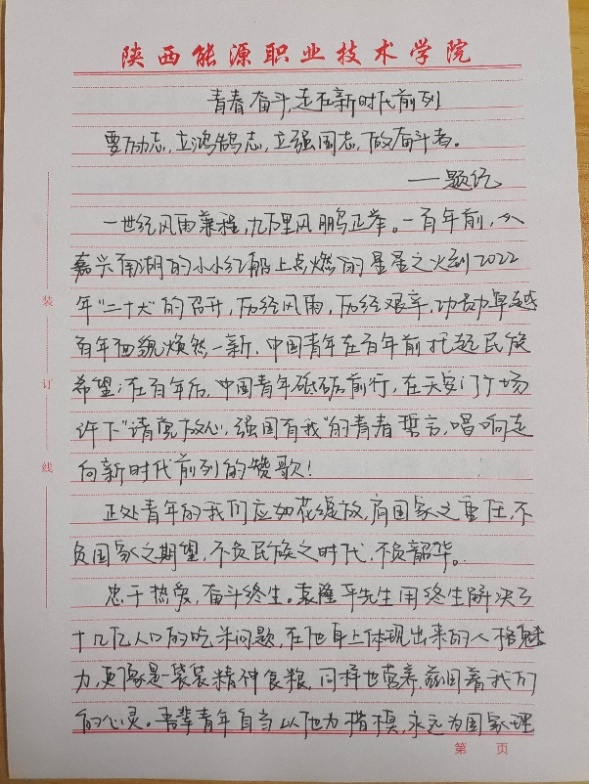 陕西能源职业技术学院
青春奋斗,走在新时代前列
要励志,立鸿鹄志,立强国志,做奋斗者。
——题记
一世纪风雨兼程,九万里风鹏正举。一百年前,从
嘉兴南湖的小小红船上点燃的星星之火到2022
年“二十大”的召开,历经风雨,历经艰辛,功勋卓越
百年面貌焕然一新.中国青年在百年前托起民族
希望;在百年后.中国青年砥砺前行,在天安门广场
许下“请党放心,强国有我”的青春誓言,唱响走
向新时代前列的赞歌!
正处青年的我们应如花绽放,肩国家之重任,不
负国家之期望,不负民族之时代,不负韶华。
忠于热爱,奋斗终生。袁隆平先生用终生解决了
十几亿人口的吃米问题,在他身上体现出来的人格魅
力,更像是一袋袋精神食粮,同样也营养滋润着我们
的心灵。吾辈青年自当以他为楷模,永远为国家理
装
订
线
第 页